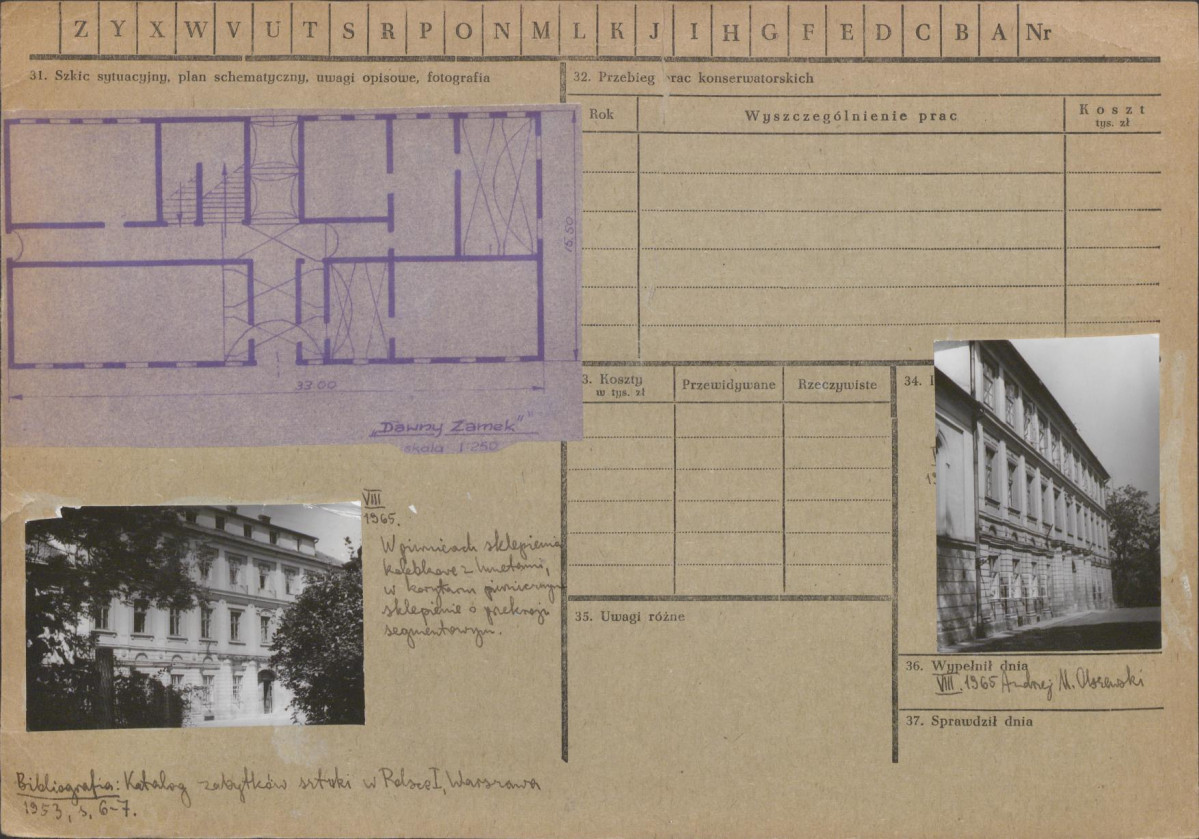 Z Y X W V U T S R P O N M L K J I H G F E D C B A Nr
31. Szkic sytuacyjny, plan schematyczny, uwagi opisowe, fotografia
15.50
33.00
„Dawny Zamek"
skala 1:250
VIII
1965.
W piwnicach sklepienia
kolebkowe z lunetami,
w korytarzu piwnicznym
sklepienie o przekroju
segmentowym.
Bibliografia: Katalog zabytków sztuki w Polsce I, Warszawa
1953, s. 6-7.
32. Przebieg prac konserwatorskich
Rok
Wyszczególnienie prac
Koszt
tys. zł
3. Koszty
w tys. zł
Przewidywane
Rzeczywiste
34.
35. Uwagi różne
36. Wypełnił dnia
VIII. 1965 Andrzej M. Olszewski
37. Sprawdził dnia